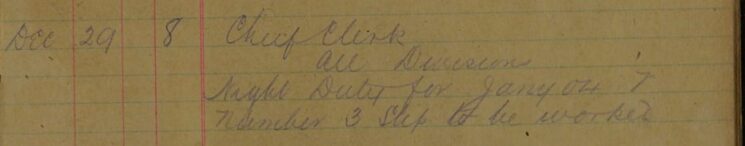 Dec 29 8 Chief Clerk
All Divisions
Night Duty for Jany 04
Number 3 Slip to be worked